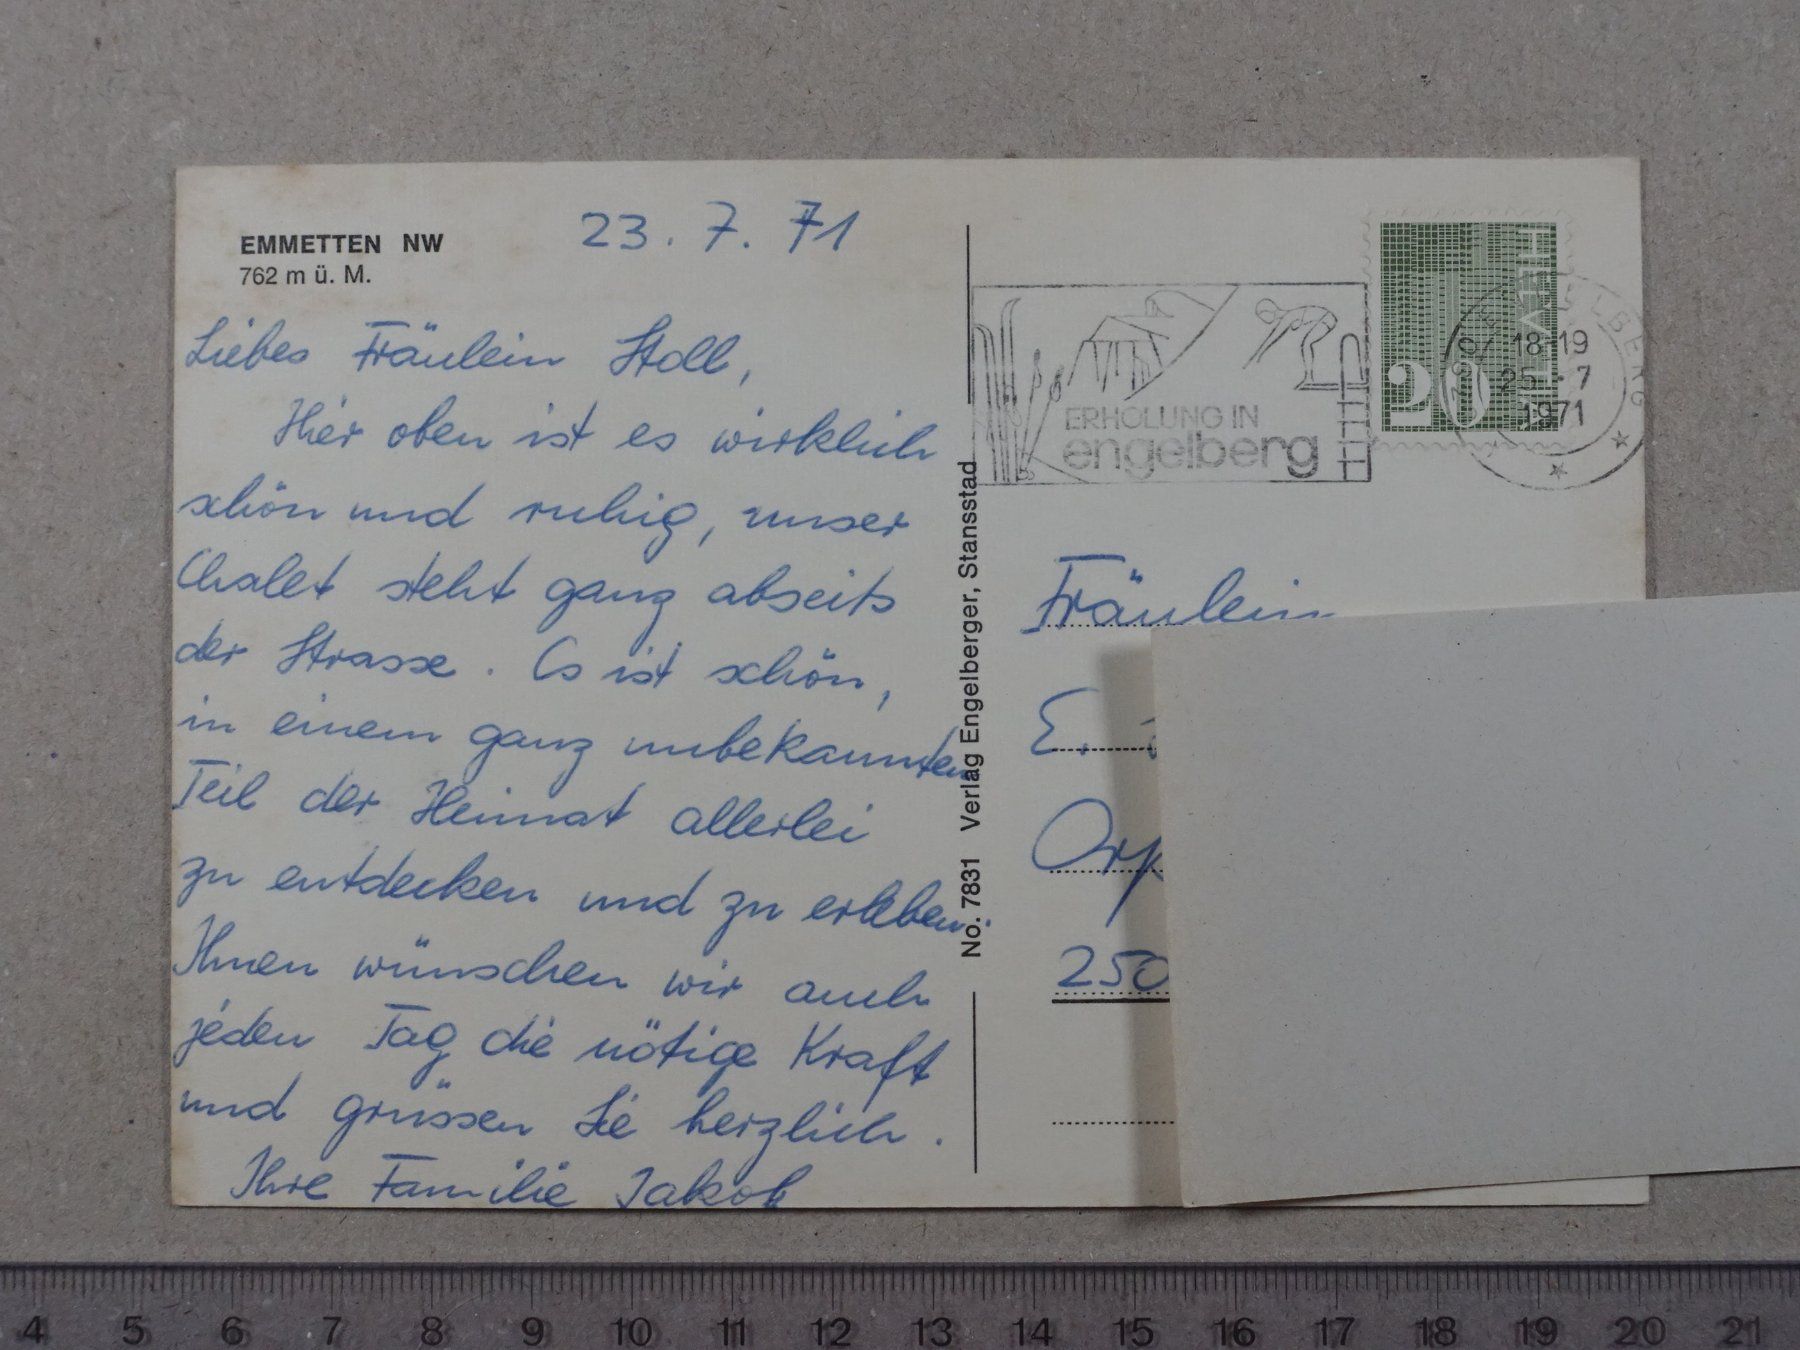 EMMETTEN NW
762 m ü. M.
23. 7. 71
Liebes Fräulein Stoll,
Hier oben ist es wirklich
schön und ruhig, unser
Chalet steht ganz abseits
der Strasse. Es ist schön,
in einem ganz unbekannten
Teil der Heimat allerlei
zu entdecken und zu erleben.
Ihnen wünschen wir auch
jeden Tag die nötige Kraft
und grüssen Sie herzlich.
Ihre Familie Jakob
No. 7831 Verlag Engelberger, Stansstad
ERHOLUNG IN
engelberg
HELVETIA
20
18-19
25.-7
1971
Fräulein
E.
250
4 5 6 7 8 9 10 11 12 13 14 15 16 17 18 19 20 21